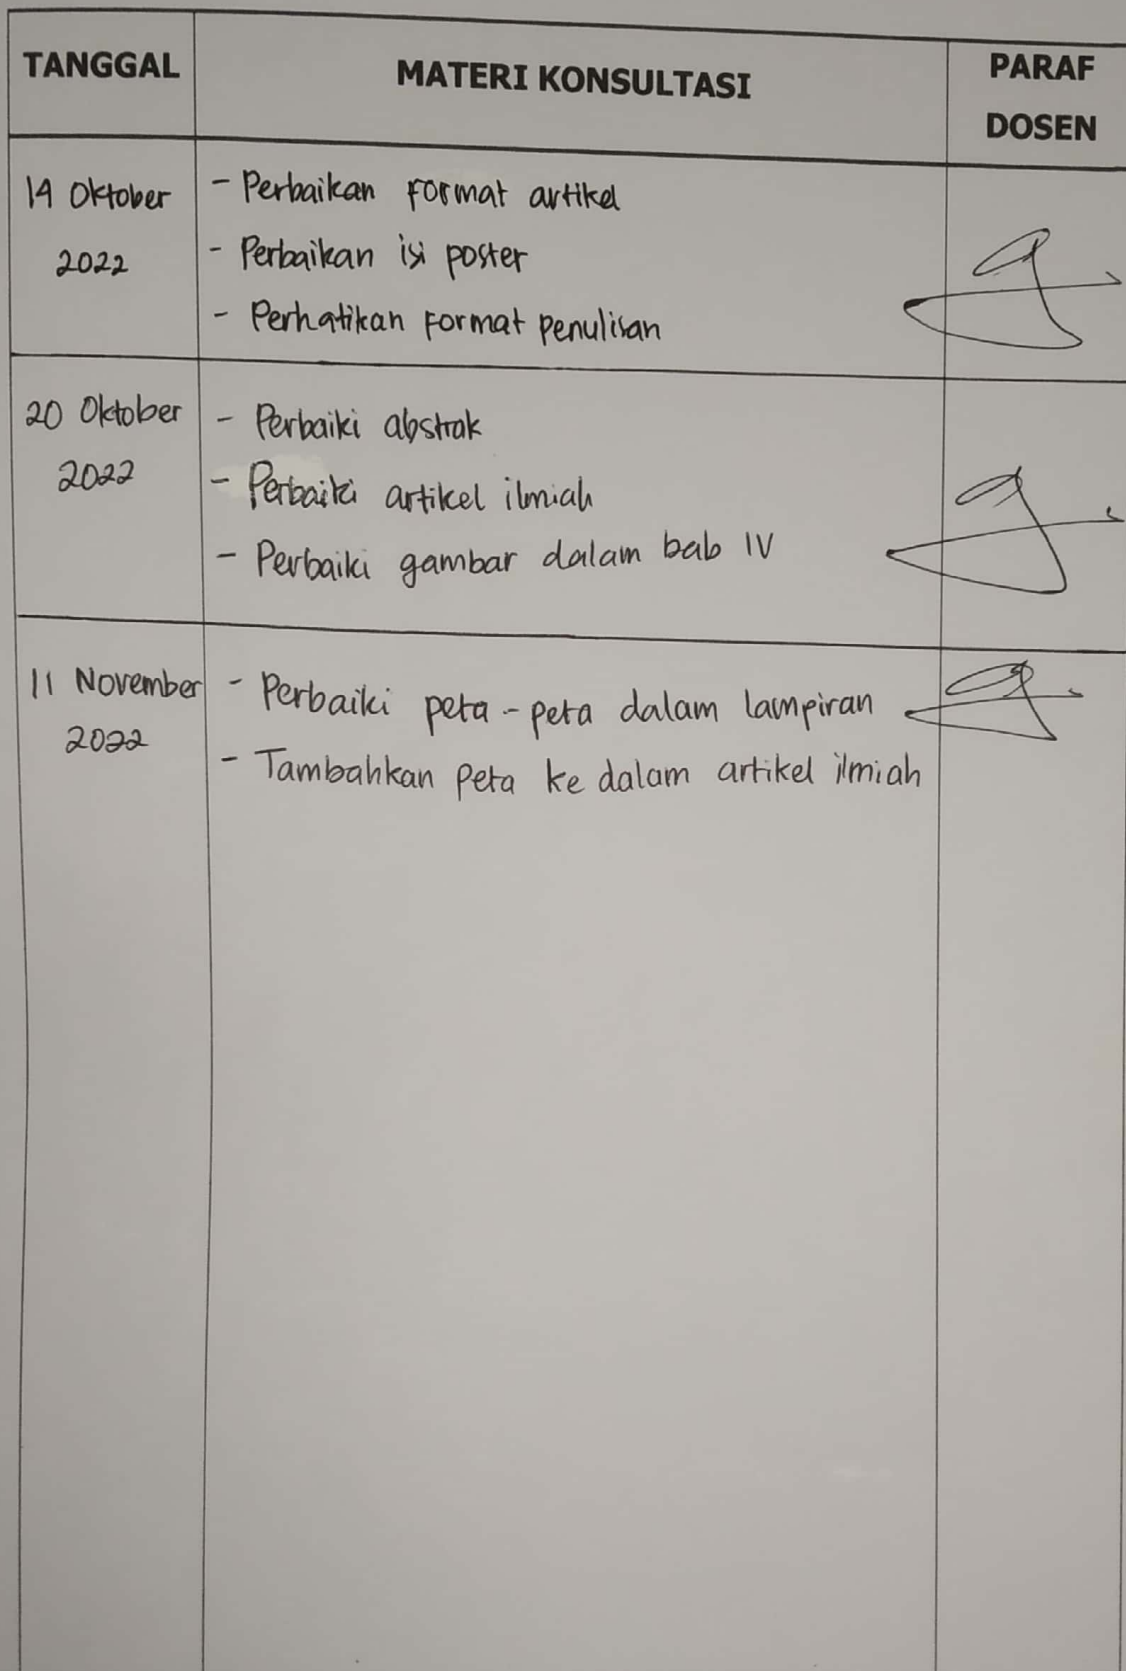 TANGGAL
MATERI KONSULTASI
PARAF
DOSEN
14 Oktober
2022
- Perbaikan format artikel
- Perbaikan isi poster
- Perhatikan format penulisan
20 Oktober
2022
- Perbaiki abstrak
- Perbaiki artikel ilmiah
- Perbaiki gambar dalam bab IV
11 November
2022
- Perbaiki peta - peta dalam lampiran
- Tambahkan peta ke dalam artikel ilmiah